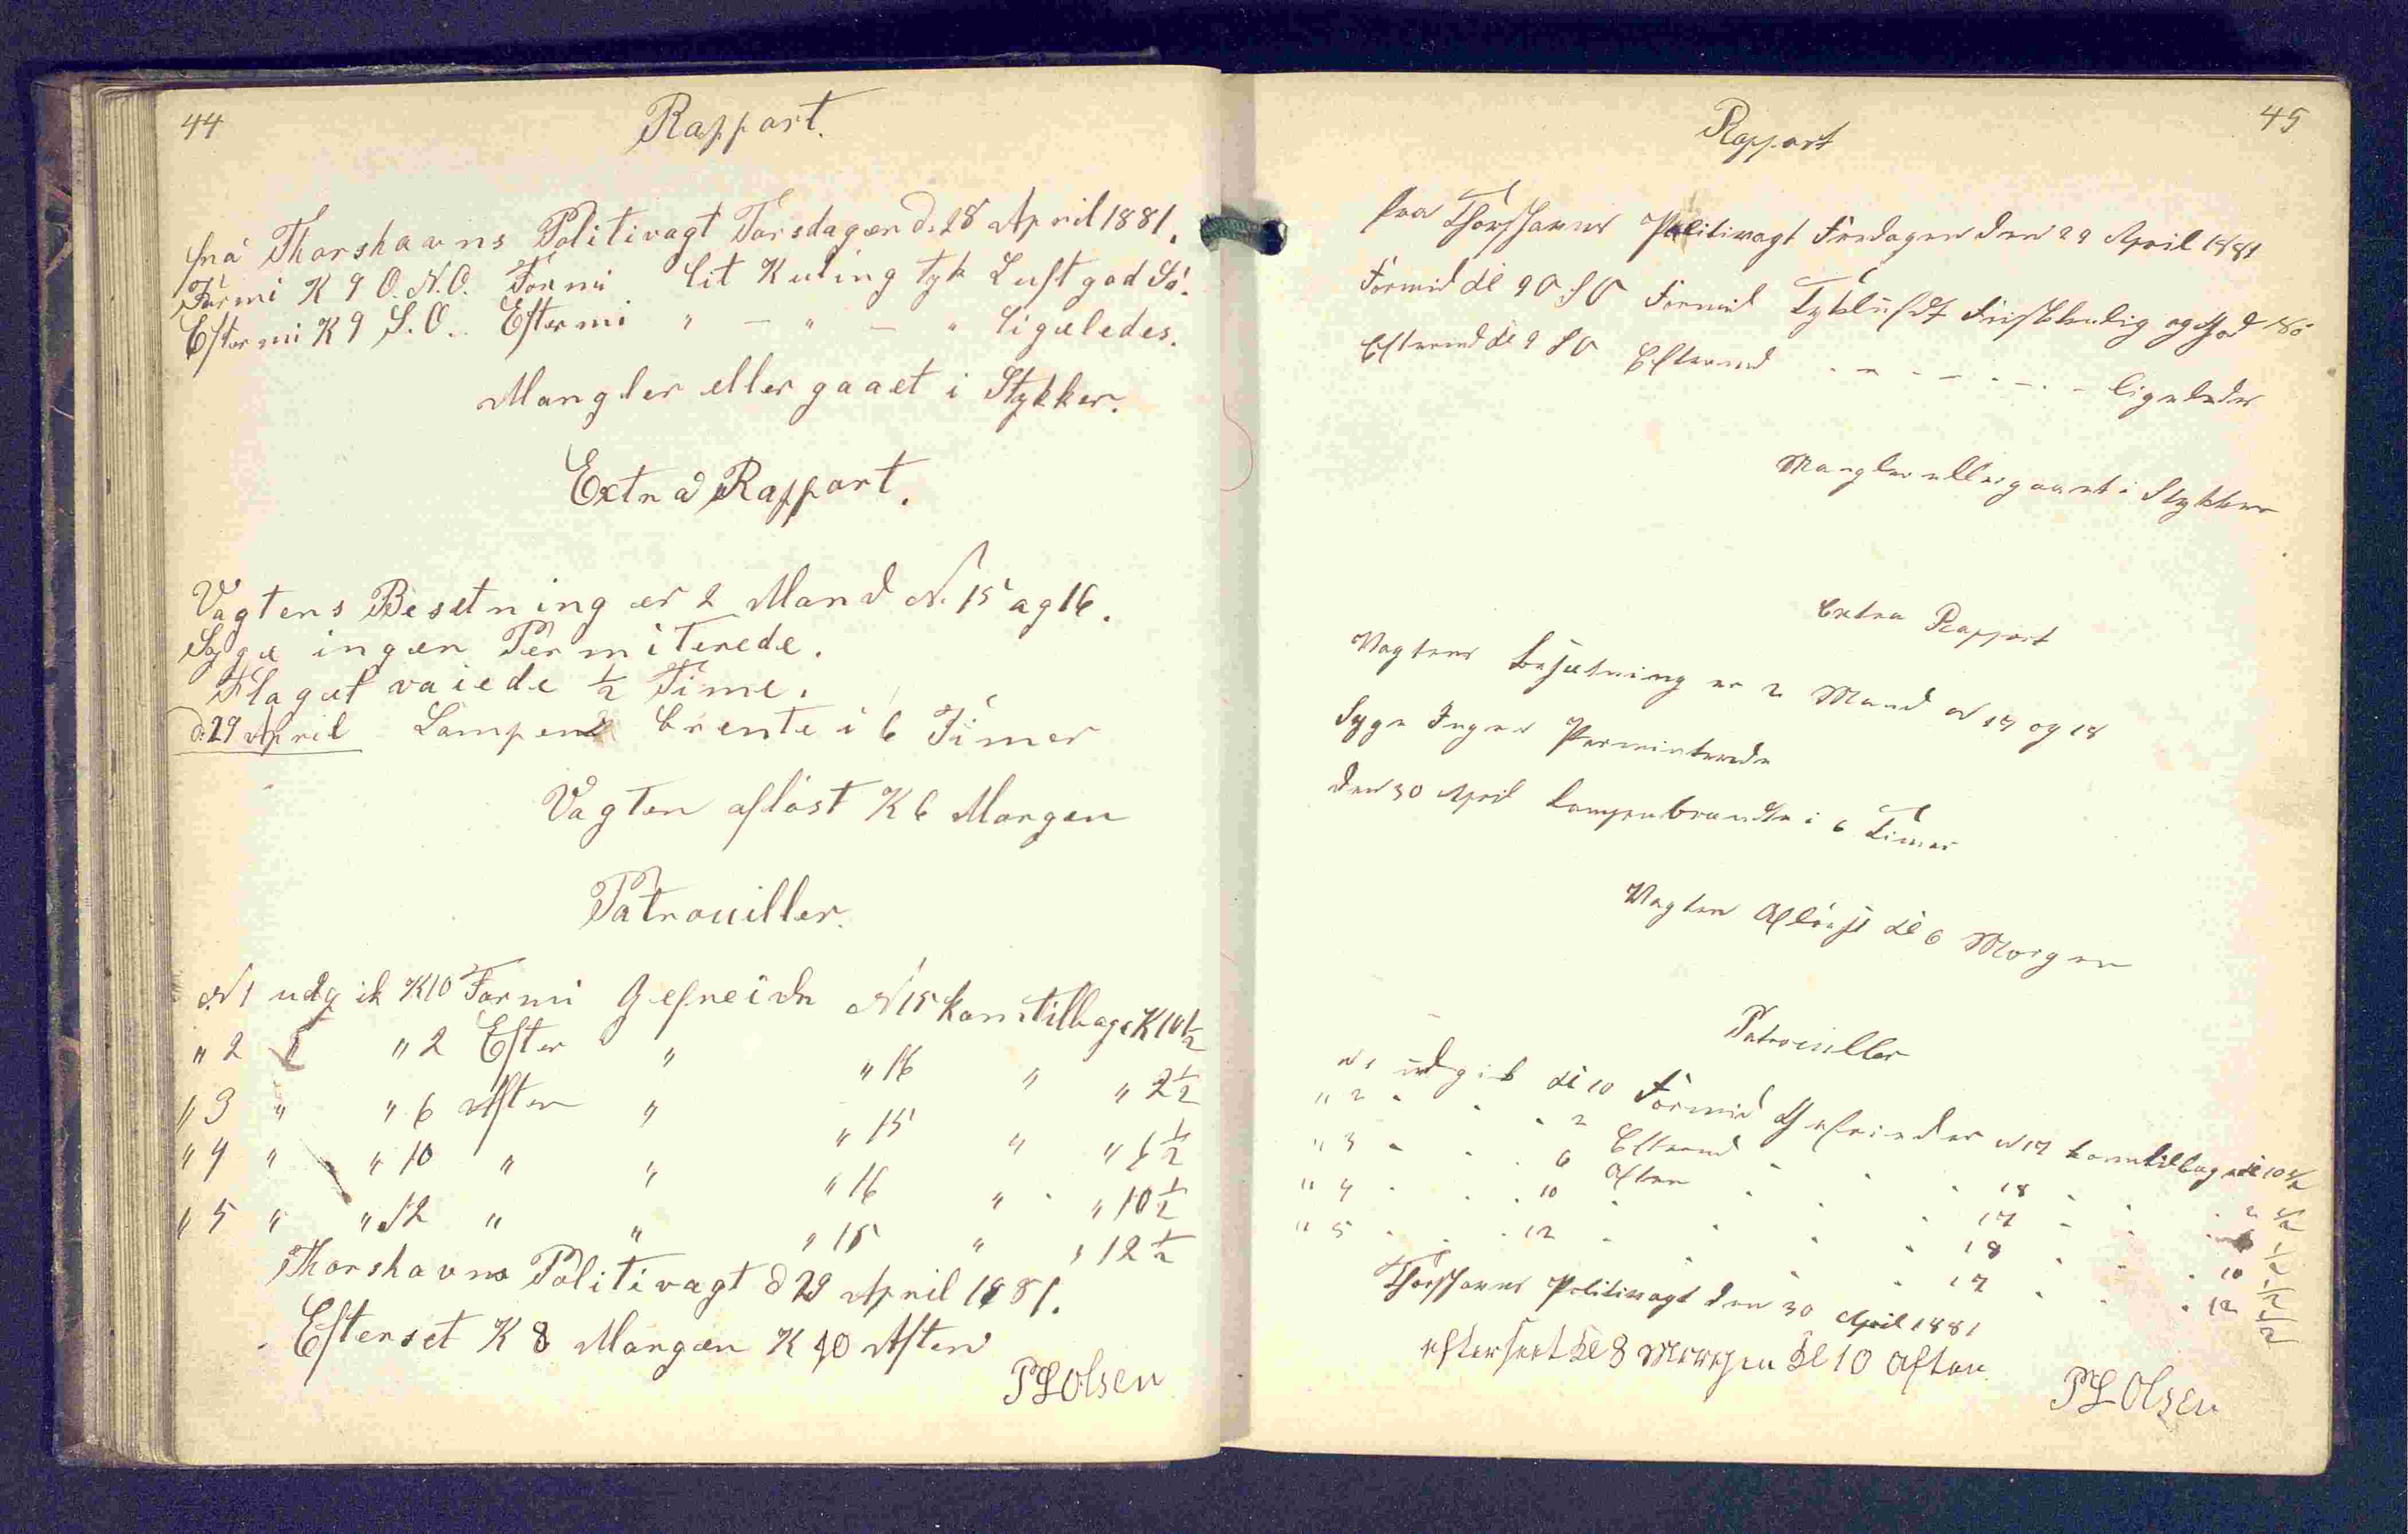 44
Rapport.
fra Thorshavns Politivagt Torsdagen d. 28 April 1881.
Formi K 9 O.N.O. Formi lit Kuling tyk Luft god Sö.
Eftermi K 9 S.O. Eftermi " — " — " ligeledes.
Mangler eller gaaet i Stykker.
Extra Rapport.
Vagtens Besetning er 2 Mand N. 15 og 16.
Syge ingen Permiterede.
Flaget vaiede ½ Time.
d. 29 April Lampen brente i 6 Timer
Vagten aflöst K 6 Morgen
Patrouiller.
N 1 udgik K 10 Formi Gefreider N 15 kom tilbage K 10 ½
" 2 " " 2 Efter " " 16 " " 2 ½
" 3 " " 6 Aften " " 15 " " 6 ½
" 4 " " 10 " " " 16 " " 10 ½
" 5 " " 12 " " " 15 " " 12 ½
Thorshavns Politivagt d 29 April 1881.
Efterset K 8 Morgen K 10 Aften
PL Olsen
45
Rapport
fra Thorshavns Politivagt Fredagen den 29 April 1881
Formid Kl 9 O.S.O Formid Tykluft Friskkulig og God Sö
Eftermd Kl 9 SO Eftermd - - - - - - - ligeledes
Mangler eller gaaet i Stykker
Extra Rapport
Vagtens besætning er 2 Mand N 17 og 18
Syge Ingen Permiterede
den 30 April Lampen brændte i 6 Timer
Vagten Aflöst Kl 6 Morgen
Patrouiller
N 1 udgik Kl 10 Formid Gefreider N 17 kom tilbage Kl 10 ½
" 2 - - - 2 Eftermd - - 18 - - - 2 ½
" 3 - - - 6 Aften - - 17 - - - ½
" 4 - - - 10 - - - 18 - - - 10 ½
" 5 - - - 12 - - - 17 - - - 12 ½
Thorshavns Politivagt den 30 April 1881
efterseet Kl 8 Morgen Kl 10 Aften
PL Olsen